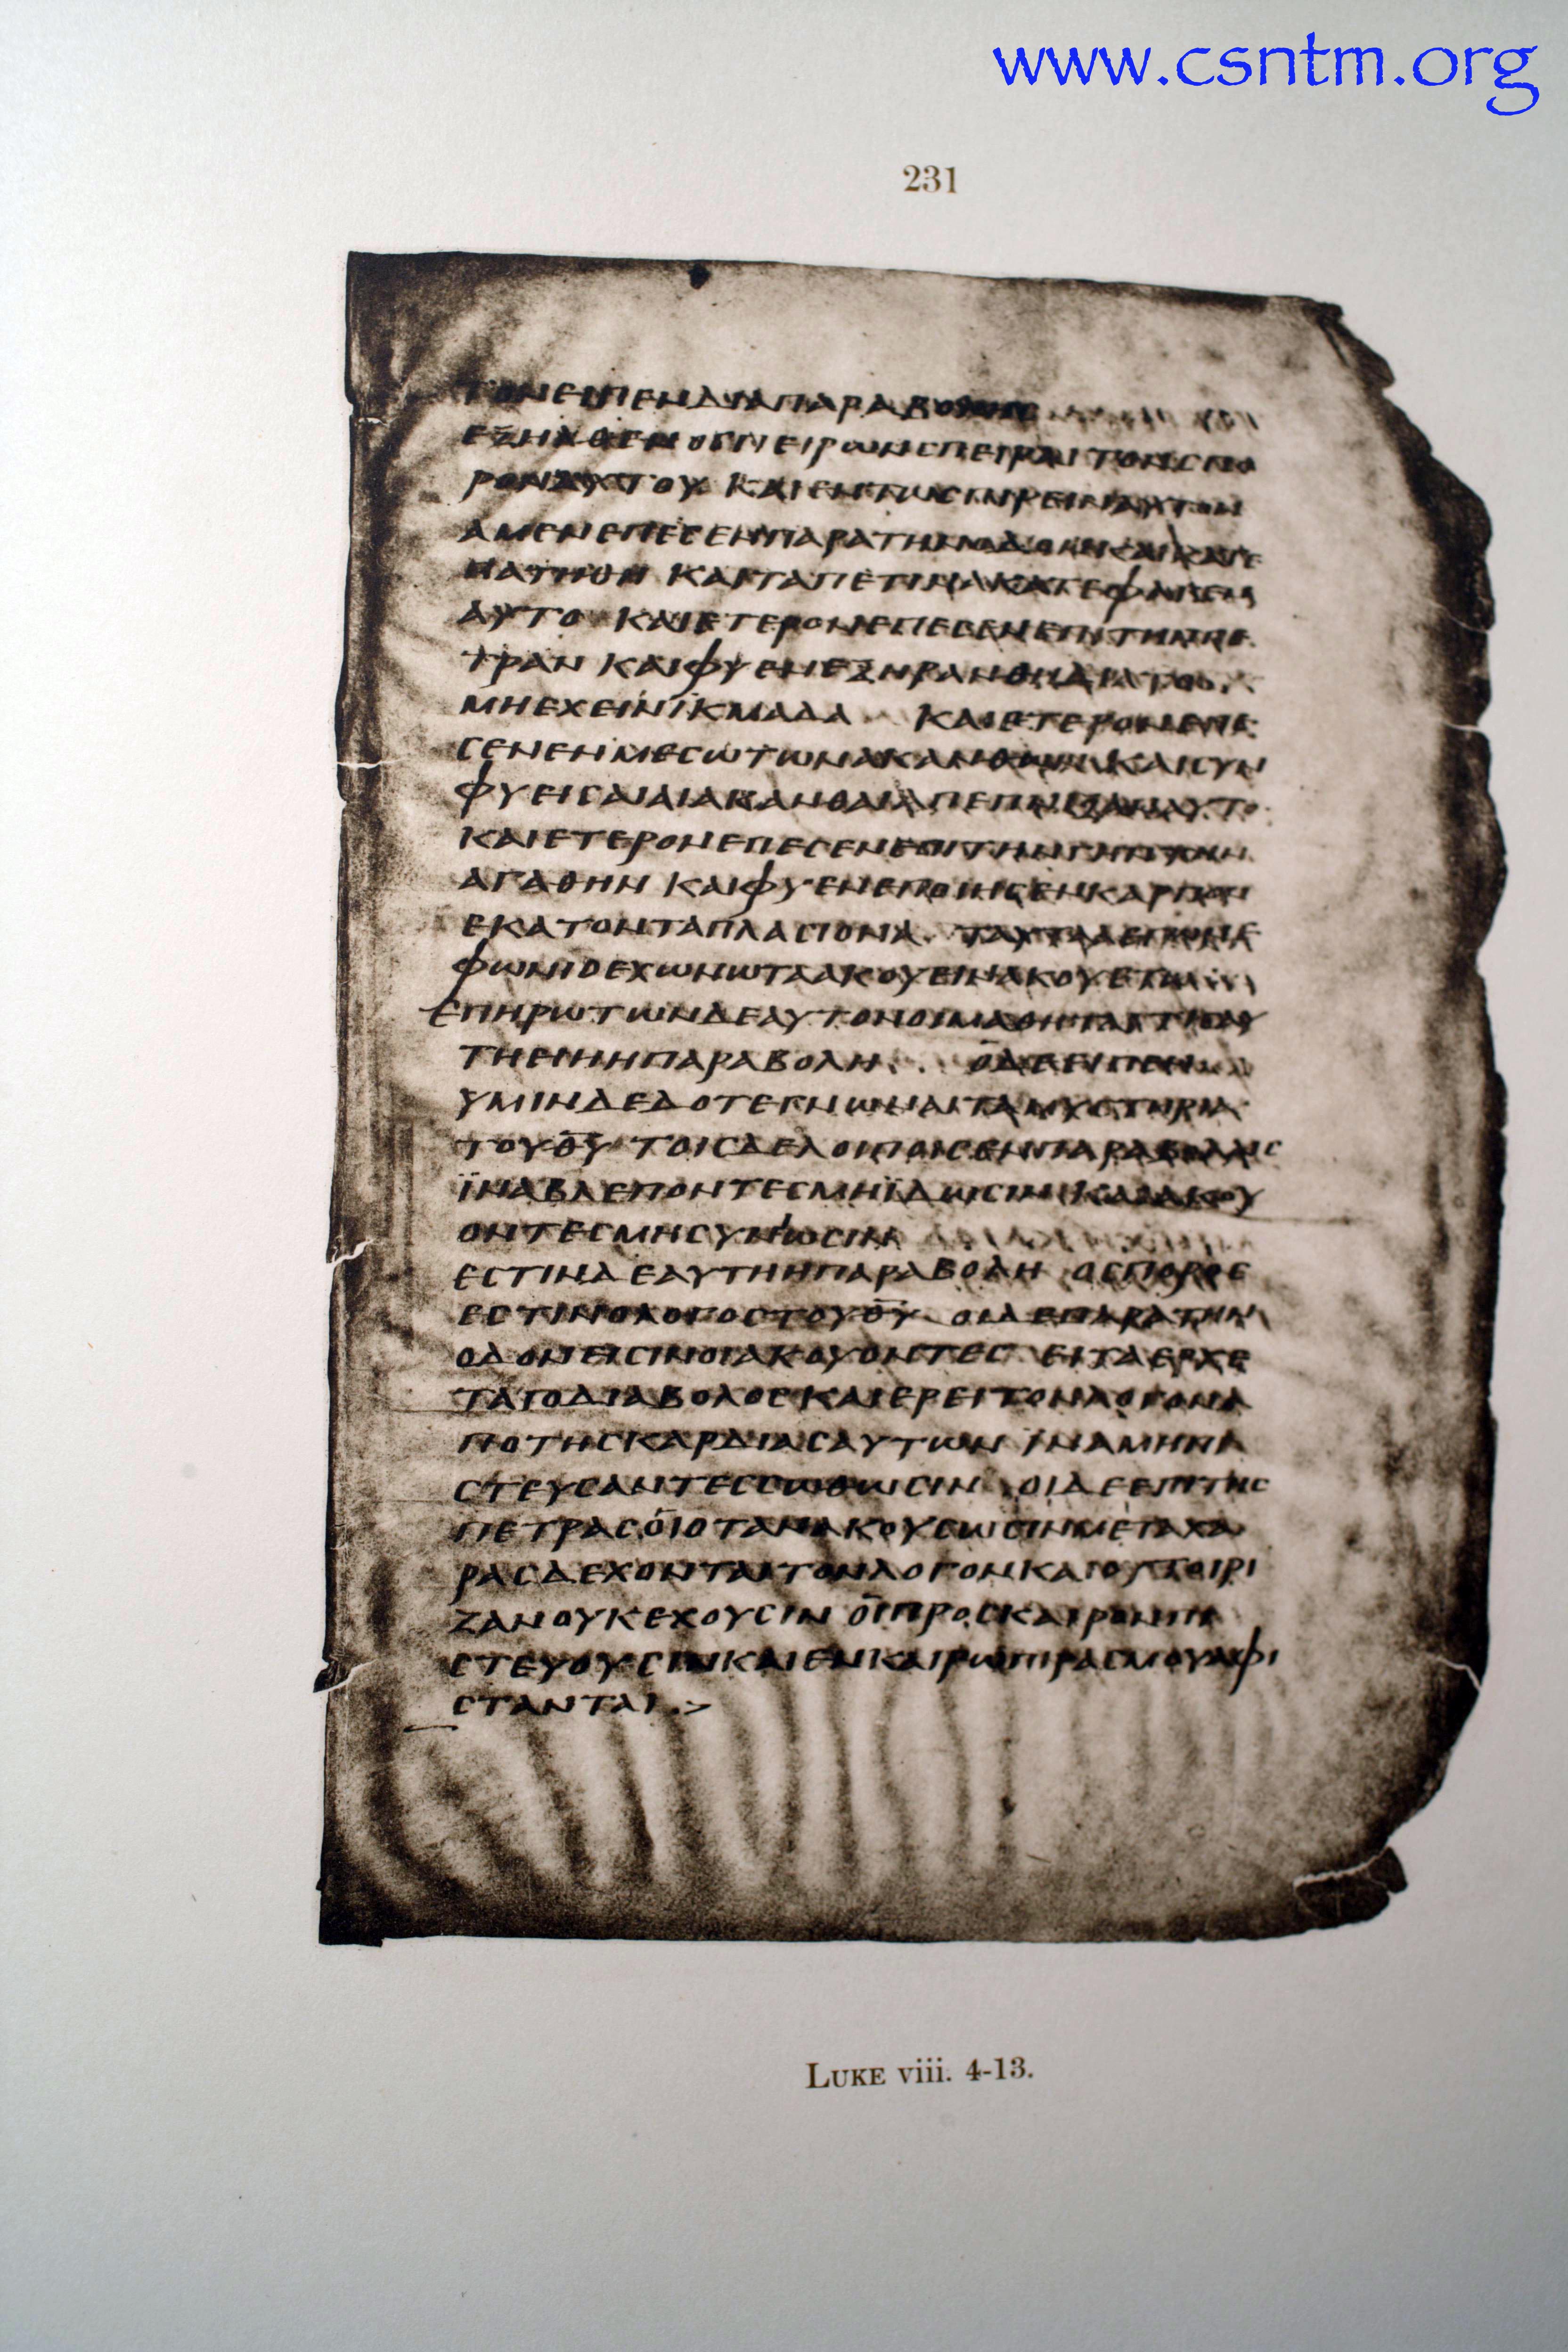 www.csntm.org
231
ΤΟΝΕΙΠΕΝΔΙΑΠΑΡΑΒΟΛΗΣ
ΕΞΗΛΘΕΝΟϹΠΕΙΡΩΝϹΠΕΙΡΑΙΤΟΝϹΠΟ
ΡΟΝΑΥΤΟΥ ΚΑΙΕΝΤΩϹΠΙΡΕΙΝΑΥΤΟΝ
ΑΜΕΝΕΠΕϹΕΝΠΑΡΑΤΗΝΟΔΟΝΚΑΙΚΑΤΕ
ΠΑΤΗΘΗ ΚΑΙΤΑΠΕΤΙΝΑΚΑΤΕΦΑΓΕΝ
ΑΥΤΟ ΚΑΙΕΤΕΡΟΝΕΠΕϹΕΝΕΠΙΤΗΝΠΕ
ΤΡΑΝ ΚΑΙΦΥΕΝΕΞΗΡΑΝΘΗΔΙΑΤΟ
ΜΗΕΧΕΙΝΪΚΜΑΔΑ ΚΑΙΕΤΕΡΟΝΕΠΕ
ϹΕΝΕΝΜΕϹΩΤΩΝΑΚΑΝΘΩΝ ΚΑΙϹΥΝ
ΦΥΕΙϹΑΙΑΙΑΚΑΝΘΑΙΑΠΕΠΝΙΞΑΝΑΥΤΟ
ΚΑΙΕΤΕΡΟΝΕΠΕϹΕΝΕΠΙΤΗΝΓΗΝΤΗΝ
ΑΓΑΘΗΝ ΚΑΙΦΥΕΝΕΠΟΙΗϹΕΝΚΑΡΠΟΝ
ΕΚΑΤΟΝΤΑΠΛΑϹΙΟΝΑ ΤΑΥΤΑΛΕΓΩΝΕ
ΦΩΝΙΟΕΧΩΝΩΤΑΑΚΟΥΕΙΝΑΚΟΥΕΤΩ
ΕΠΗΡΩΤΩΝΔΕΑΥΤΟΝΟΙΜΑΘΗΤΑΙΤΙϹΑΥ
ΤΗΕΙΗΗΠΑΡΑΒΟΛΗ ΟΔΕΕΙΠΕΝ
ΥΜΙΝΔΕΔΟΤΕΓΝΩΝΑΙΤΑΜΥϹΤΗΡΙΑ
ΤΟΥΘ̅Υ̅ ΤΟΙϹΔΕΛΟΙΠΟΙϹΕΝΠΑΡΑΒΟΛΑΙϹ
ΪΝΑΒΛΕΠΟΝΤΕϹΜΗΪΔΩϹΙΝ ΚΑΙΑΚΟΥ
ΟΝΤΕϹΜΗϹΥΝΙΩϹΙΝ
ΕϹΤΙΝΔΕΑΥΤΗΗΠΑΡΑΒΟΛΗ ΟϹΠΟΡΟϹ
ΕϹΤΙΝΟΛΟΓΟϹΤΟΥΘ̅Υ̅ ΟΙΔΕΠΑΡΑΤΗΝ
ΟΔΟΝΕΙϹΙΝΟΙΑΚΟΥΟΝΤΕϹ ΕΙΤΑΕΡΧΕ
ΤΑΙΟΔΙΑΒΟΛΟϹΚΑΙΕΡΕΙΤΟΝΛΟΓΟΝΑ
ΠΟΤΗϹΚΑΡΔΙΑϹΑΥΤΩΝ ΪΝΑΜΗΠΙ
ϹΤΕΥϹΑΝΤΕϹϹΩΘΩϹΙΝ ΟΙΔΕΕΠΙΤΗϹ
ΠΕΤΡΑϹΟΙΟΤΑΝΑΚΟΥϹΩϹΙΝΜΕΤΑΧΑ
ΡΑϹΔΕΧΟΝΤΑΙΤΟΝΛΟΓΟΝΚΑΙΟΥΤΟΙΡΙ
ΖΑΝΟΥΚΕΧΟΥϹΙΝ ΟΙΠΡΟϹΚΑΙΡΟΝΠΙ
ϹΤΕΥΟΥϹΙΝΚΑΙΕΝΚΑΙΡΩΠΙΡΑϹΜΟΥΑΦΙ
ϹΤΑΝΤΑΙ
LUKE viii. 4-13.